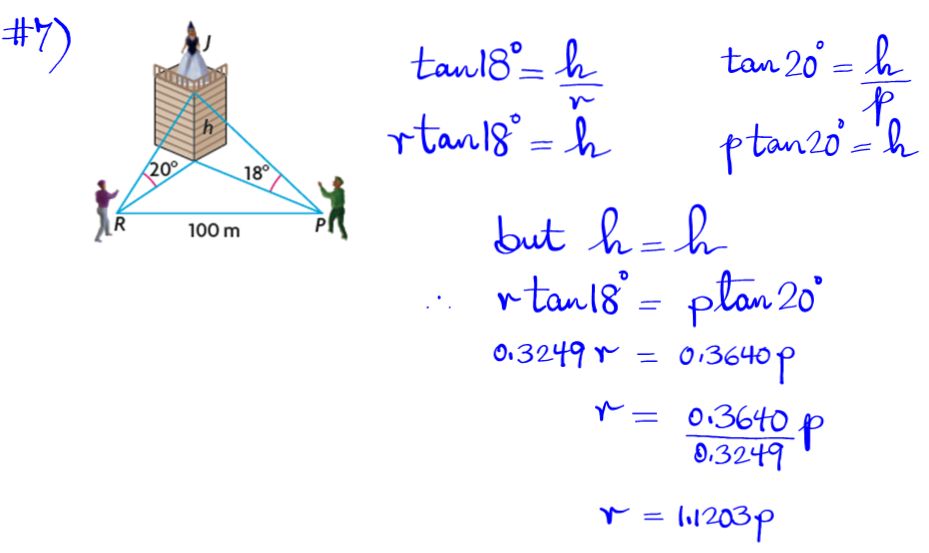 #7)
J
h
20°
18°
R
P
100 m
tan18° = h/r
rtan18° = h
tan20° = h/p
ptan20° = h
but h = h
∴ rtan18° = ptan20°
0.3249r = 0.3640p
r = 0.3640/0.3249 p
r = 1.1203p